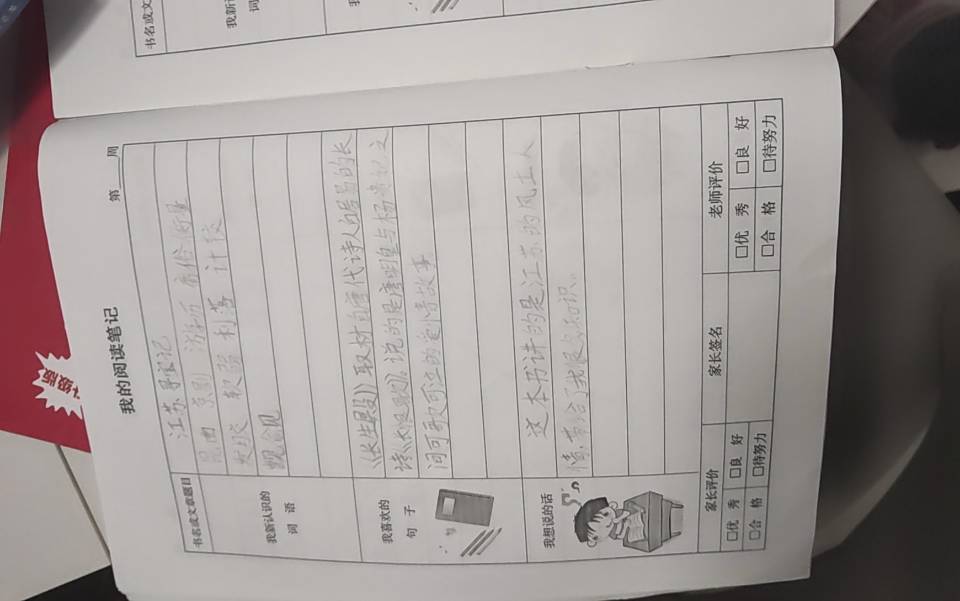 书名或文
我新
词
升级版
我的阅读笔记
第____周
书名或文章题目
江苏寻宝记
我新认识的
词 语
昆曲 京剧 游历 衡量
软弱 利落 计较
我喜欢的
句 子
《长生殿》取材自唐代诗人白居易的长
诗《长恨歌》,说的是唐明皇与杨贵妃之
间可歌可泣的爱情故事
我想说的话
这本书讲的是江苏的风土人
情,带给了我很多知识。
家长评价
家长签名
老师评价
□优 秀 □良 好
□合 格 □待努力
□优 秀 □良 好
□合 格 □待努力